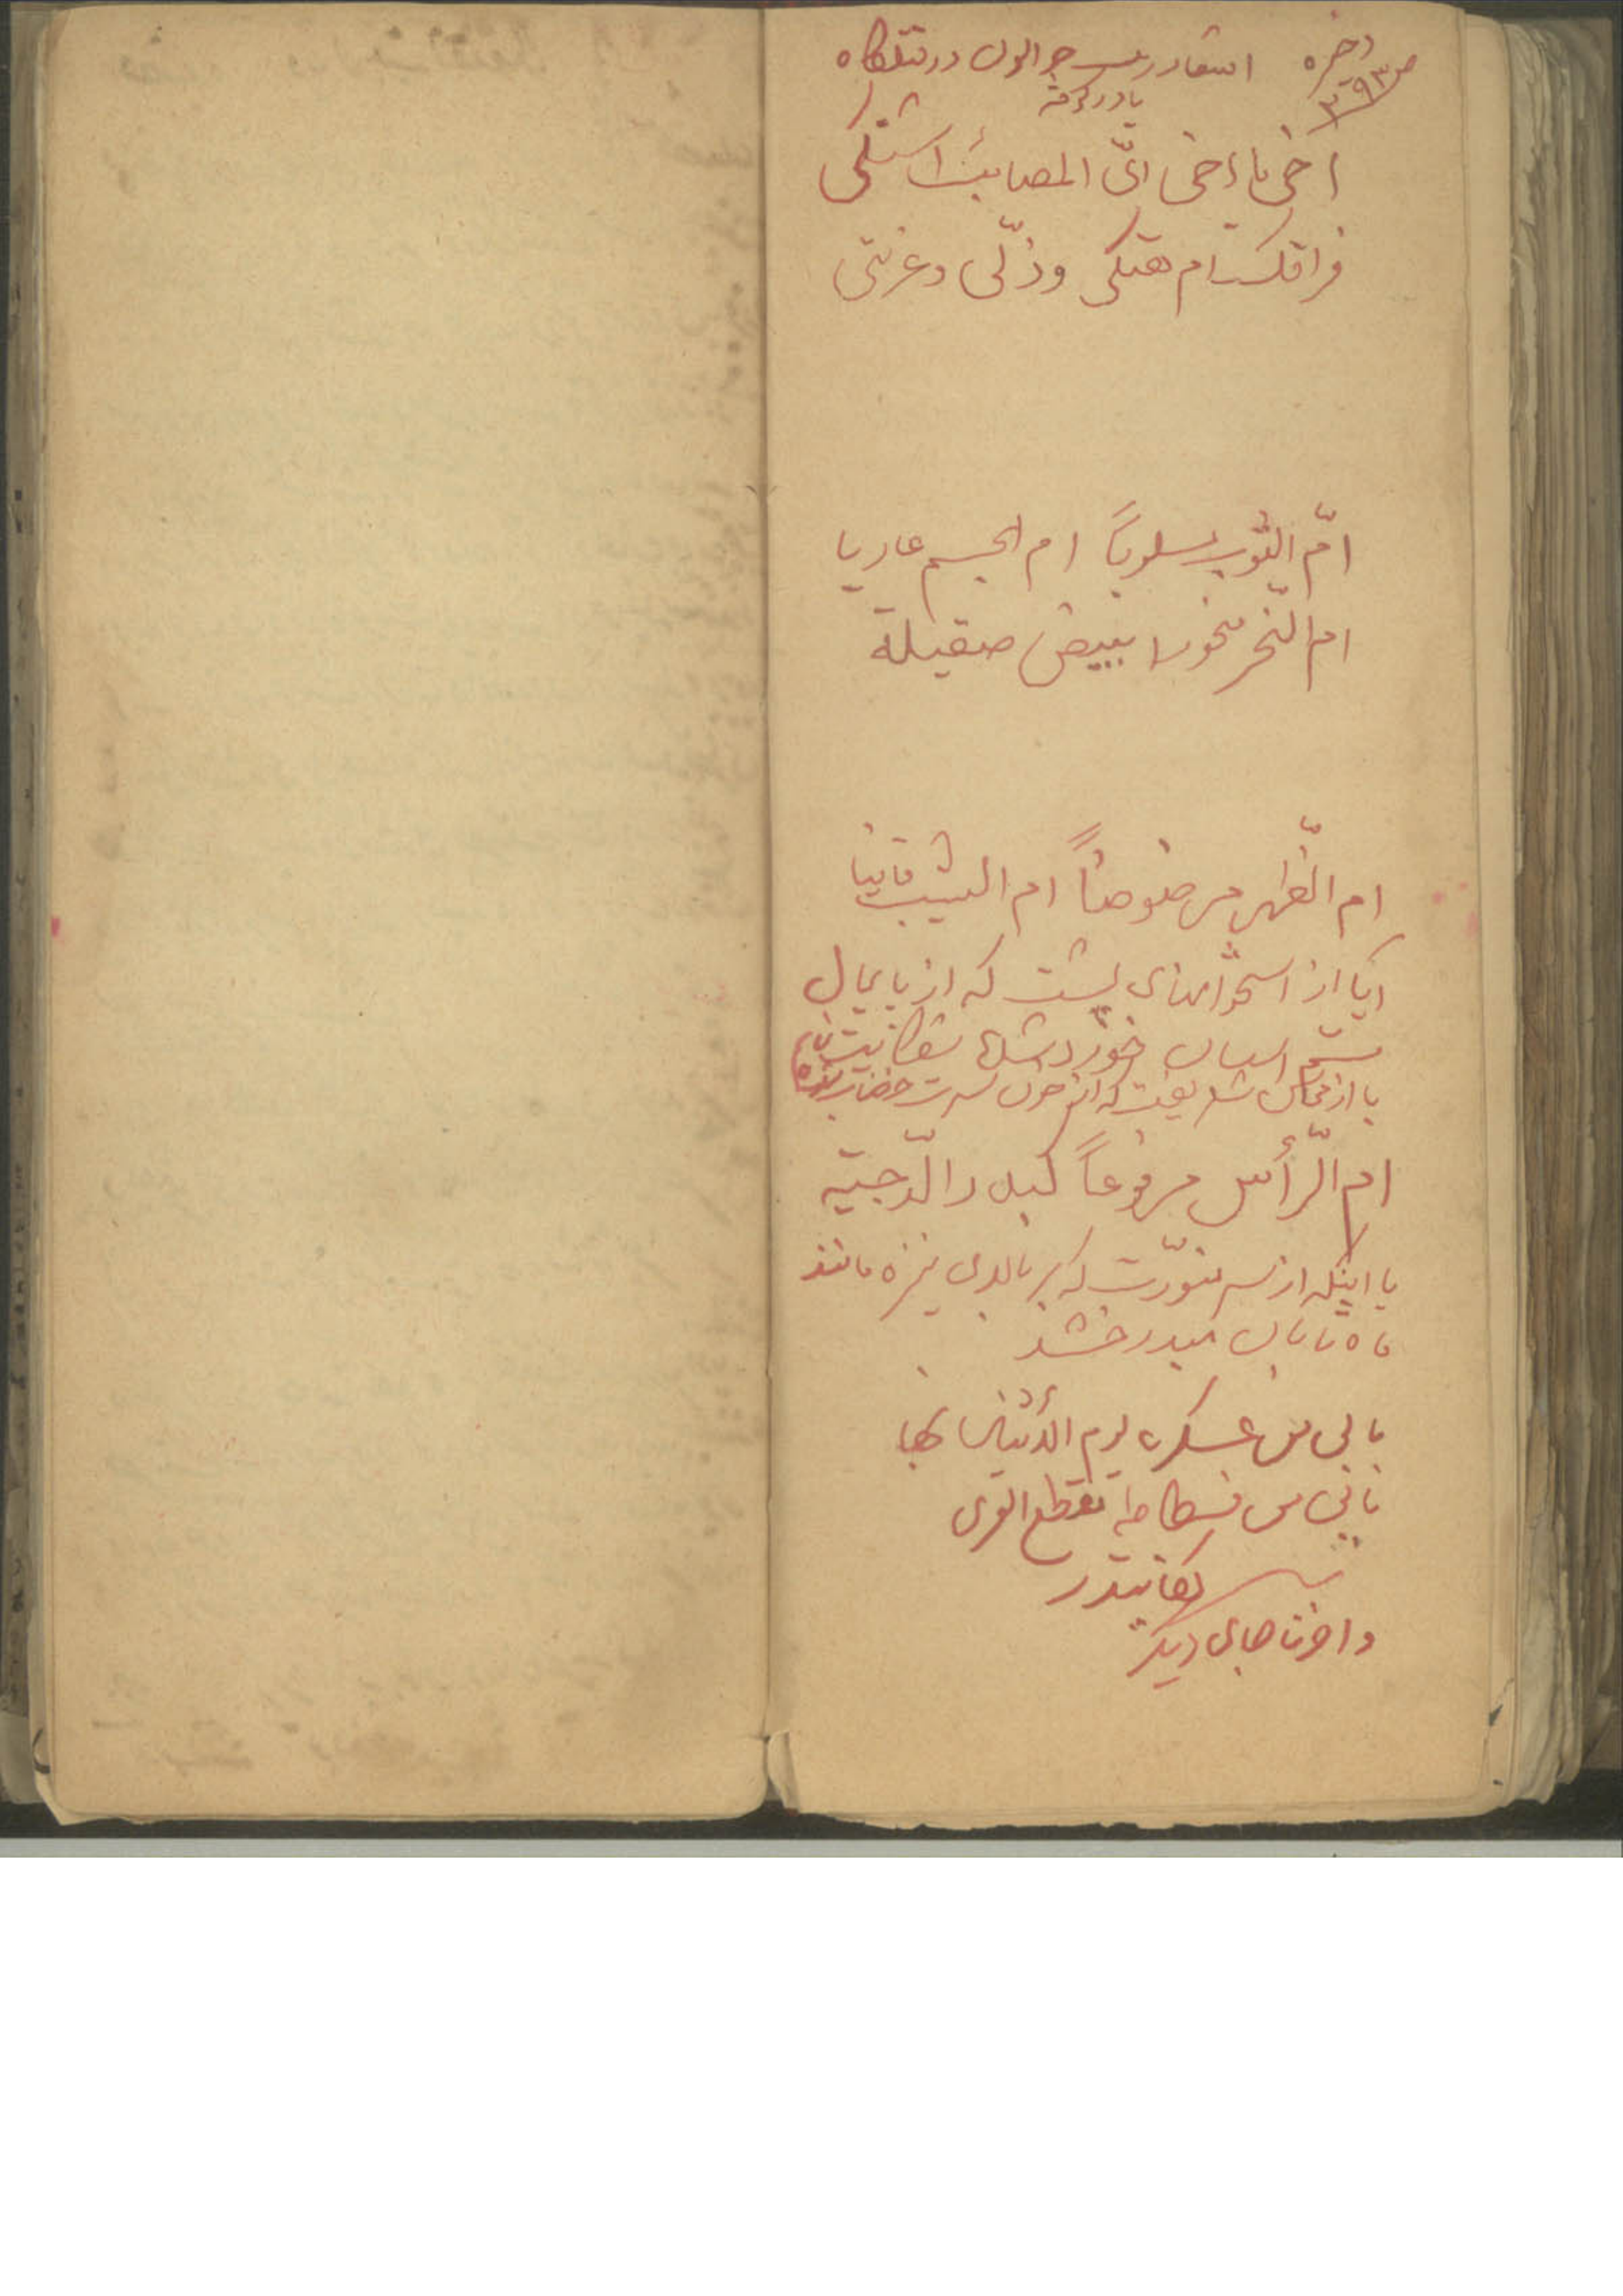 ذخیره
ص ۳۹۳
اشعار زینب در قتلگاه
یا در کوفه
اخی یا اخی ایّ المصائب اشتکی
فراقک ام هتکی و ذلّی و غربتی
امّ الثوب مسلوباً ام الجسم عاریا
ام النّحر منحورا ببیض صقیلة
ام الظّهر مرضوضاً ام الشیب قانیا
آیا از استخوانهای پشت که از پایمال
ستم اسبان خورد شده شکایت کنم
یا از محاسن شریفت که از خون سرت خضاب شده
ام الرّأس مرفوعاً کبدر الدّجیّة
یا اینکه از سر منوّرت که بر بالای نیزه مانند
ماه تابان میدرخشد
بابی من عسکره یوم الاثنین نهبا
بابی من فسطاطه مقطع العری
و اخت جای دیگر